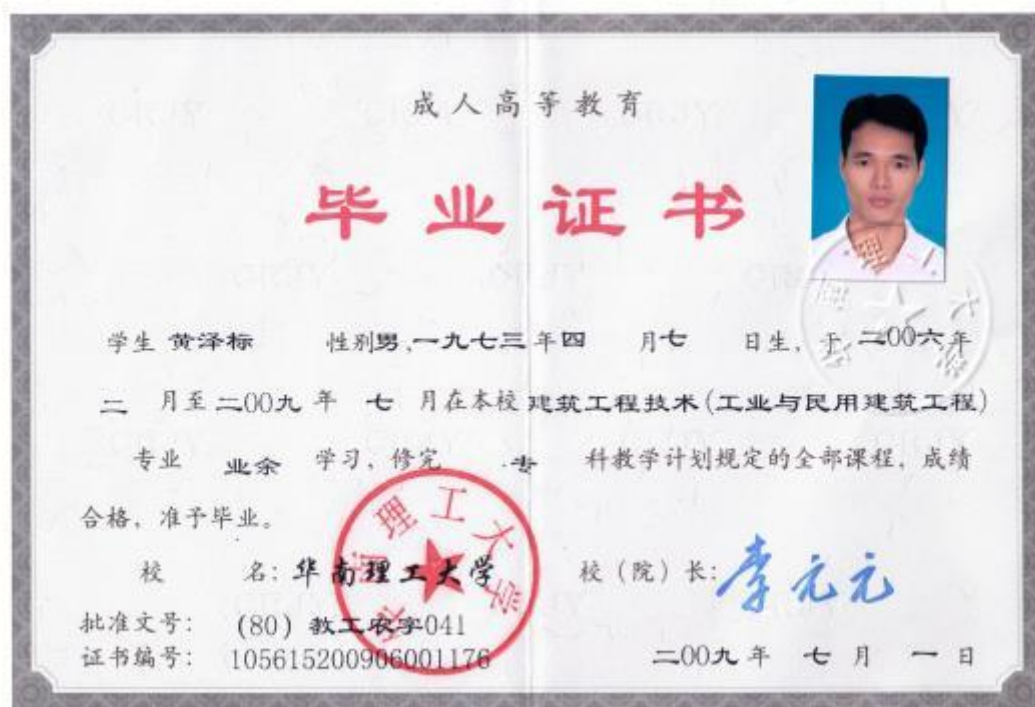 成人高等教育
毕业证书
学生 黄泽标 性别男,一九七三年四 月七 日生, 于 二00六年
二 月至 二00九 年 七 月在本校 建筑工程技术(工业与民用建筑工程)
专业 业余 学习, 修完 专 科教学计划规定的全部课程, 成绩
合格, 准予毕业。
校 名: 华南理工大学 校(院)长: 李元元
批准文号: (80)教工农字041
证书编号: 105615200906001176
二00九 年 七 月 一 日
华南理工大学